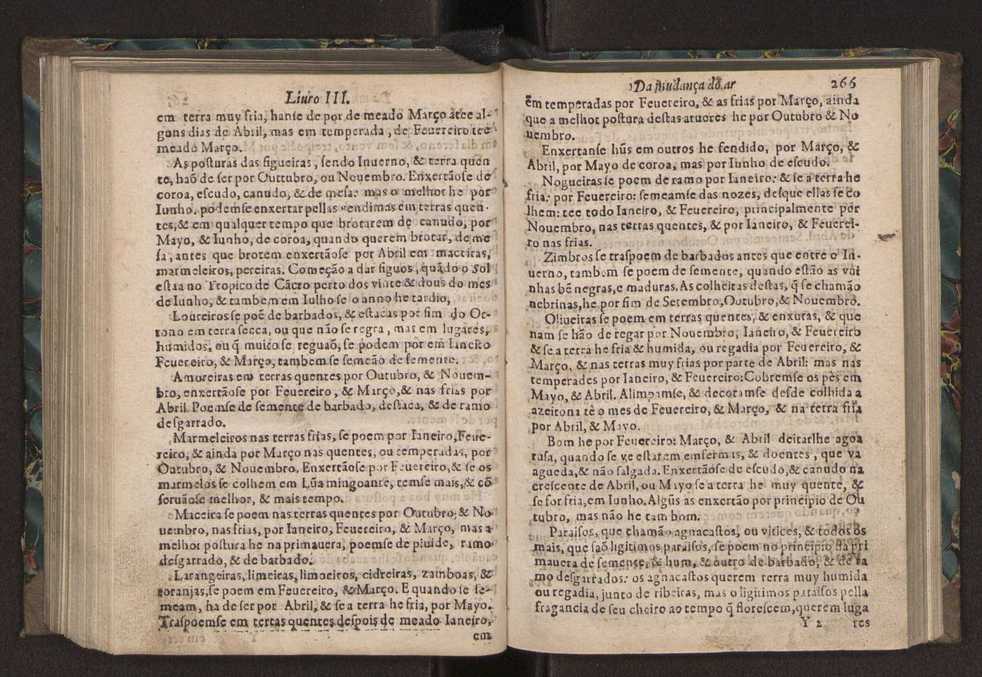 Liuro III.
em terra muy fria, hanse de por de meado Março atee al-
gons dias de Abril, mas em temperada, de Feuereiro tee
meado Março.
As posturas das figueiras, sendo Inuerno, & terra quen
te, haõ de ser por Outtubro, ou Nouembro. Enxertãose de
coroa, escudo, canudo, & de mesa: mas o melhor he por
Iunho, podemse enxertar pellas vendimas em terras quen-
tes, & em qualquer tempo que brotarem de canudo, por
Mayo, & Iunho, de coroa, quando querem brotar, de me
sa, antes que brotem enxertãose por Abril em maceiras,
marmeleiros, pereiras. Começão a dar figuos, quãdo o Sol
esta na Tropico de Cãcro perto dos vinte & dous do mes
de Iunho, & tambem em Iulho se o anno he tardio,
Loureiros se poẽ de barbados, & estacas por fim do Ot-
tono em terra secca, ou que não se regra, mas em lugares,
humidos, ou q̃ muito se reguaõ, se podem por em Ianeiro
Feuereiro, & Março, tambem se semeão de semente.
Amoreiras em terras quentes por Outubro, & Nouem-
bro, enxertãose por Feuereiro, & Março, & nas frias por
Abril. Poemse de semente de barbado, destaca, & de ramo
desgarrado.
Marmeleiros nas terras frias, se poem por Ianeiro, Feue-
reiro, & ainda por Março nas quentes, ou temperadas, por
Outubro, & Nouembro. Enxertãose por Feuereiro, & se os
marmelos se colhem em Lũa mingoante, temse mais, & cõ
seruãose melhor, & mais tempo.
Maceira se poem nas terras quentes por Outubro, & No
uembro, nas frias, por Ianeiro, Feuereiro, & Março, mas a
melhor postura he na primauera, poemse de piuide, ramo
desgarrado, & de barbado.
Larangeiras, limeiras, limoeiros, cidreiras, zamboas, &
toranjas, se poem em Feuereiro, & Março. E quando se se-
meam, ha de ser por Abril, & se a terra he fria, por Mayo.
Traspoemse em terras quentes despois de meado Ianeiro,
em
Da mudança do ar 266
em temperadas por Feuereiro, & as frias por Março, ainda
que a melhor postura destas aruores he por Outubro & No
uembro.
Enxertanse hũs em outros he fendido, por Março, &
Abril, por Mayo de coroa, mas por Iunho de escudo.
Nogueiras se poem de ramo por Ianeiro: & se a terra he
fria: por Feuereiro: semeamse das nozes, desque ellas se co
lhem: tee todo Ianeiro, & Feuereiro, principalmente por
Nouembro, nas terras quentes, & por Ianeiro, & Feuerei-
ro nas frias.
Zimbros se traspoem de barbados antes que entre o In-
uerno, tambem se poem de semente, quando estão as vui
nhas bẽ negras, e maduras. As colheitas destas, q̃ se chamão
nebrinas, he por fim de Setembro, Outubro, & Nouembro.
Oliueiras se poem em terras quentes, & enxutas, & que
nam se hão de regar por Nouembro, Ianeiro, & Feuereiro
& se a terra he fria & humida, ou regadia por Feuereiro, &
Março, & nas terras muy frias por parte de Abril: mas nas
temperades por Ianeiro, & Feuereiro: Cobremse os pès em
Mayo, & Abril. Alimpamse, & decotamse desde colhida a
azeitona tè o mes de Feuereiro, & Março, & na terra fria
por Abril, & Mayo.
Bom he por Feuereiro: Março, & Abril deitarlhe agoa
rusa, quando se ve estarem emfermas, & doentes, que va
agueda, & não salgada. Enxertãose de escudo, & canudo na
crescente de Abril, ou Mayo se a terra he muy quente, &
se for fria, em Iunho. Algũs as enxertão por principio de Ou
tubro, mas não he tam bom.
Paraisos, que chamão agnacastos, ou vitices, & todos os
mais, que saõ ligitimos paraisos, se poem no principio da pri
mauera de semense, & hum, & outro de barbado, & de ra
mo desgarrados: os agnacastos querem terra muy humida
ou regadia, junto de ribeiras, mas o liginimos paraisos pella
fragancia de seu cheiro ao tempo q̃ florescem, querem luga
Y 2 res